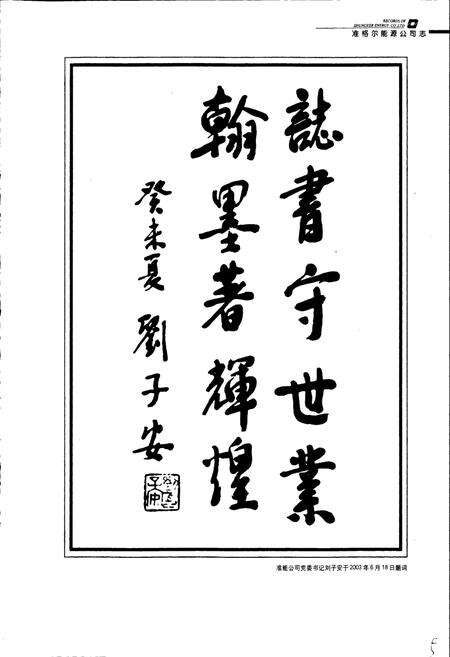 RECORDS OF
ZHUNGEER ENERGY CO.,LTD
准格尔能源公司志
誌書守世業
翰墨著輝煌
癸未夏 劉子安
准能公司党委书记刘子安于2003年6月18日题词